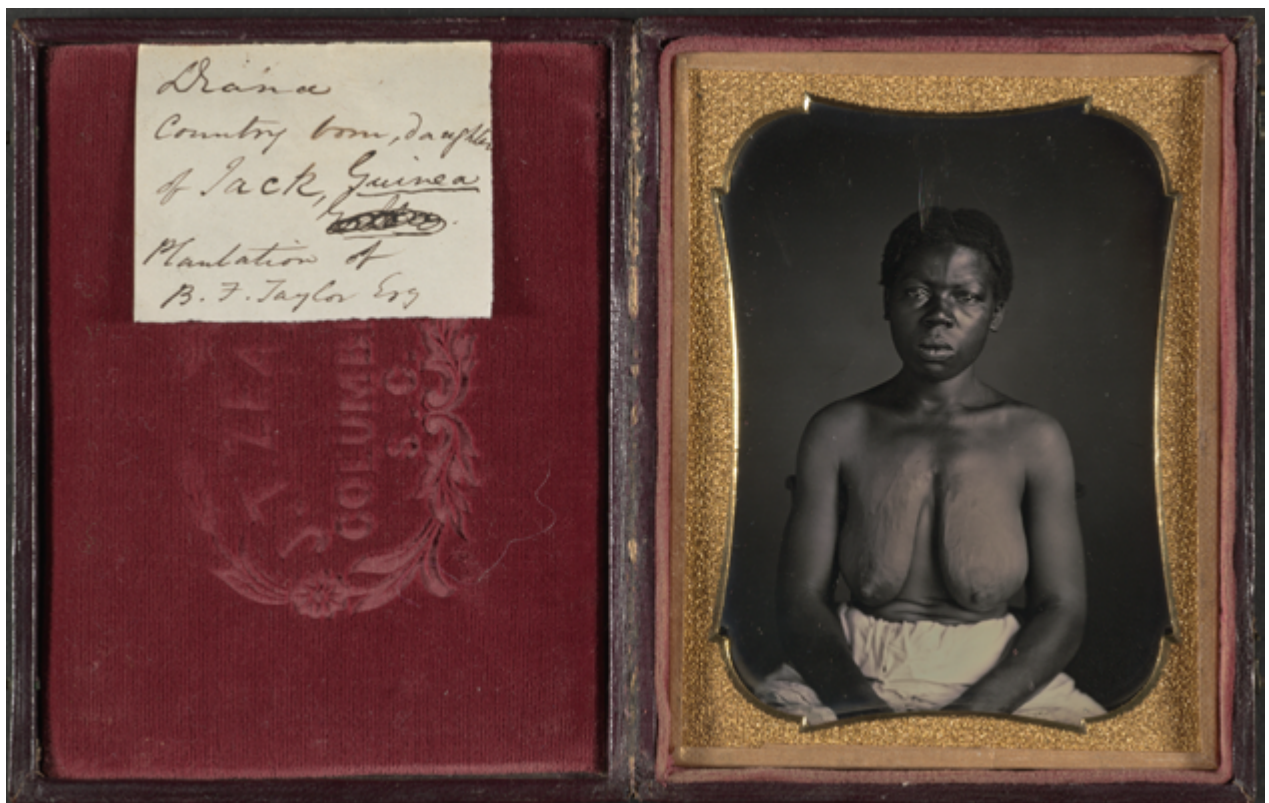 Drana
Country born, daughter
of Jack, Guinea
Plantation of
B. F. Taylor Esq
J. T. ZEA
COLUMB
S. C